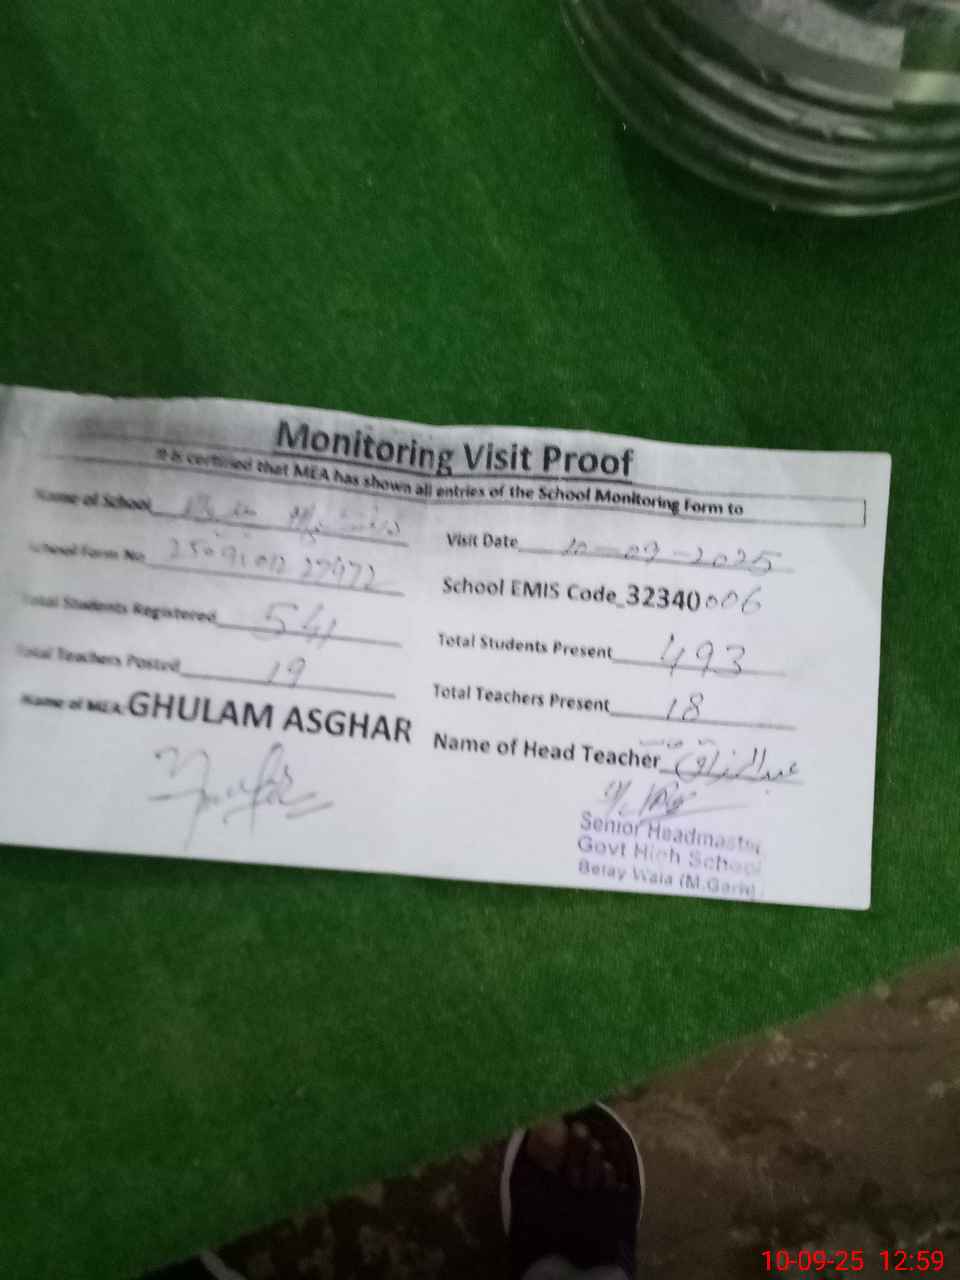 Monitoring Visit Proof
It is certified that MEA has shown all entries of the School Monitoring Form to
Name of School
Visit Date 10-09-2025
School Form No
School EMIS Code 32340006
Total Students Registered 541
Total Students Present 493
Total Teachers Posted 19
Total Teachers Present 18
Name of MEA: GHULAM ASGHAR
Name of Head Teacher عبدالرزاق
Senior Headmaster
Govt High School
10-09-25 12:59